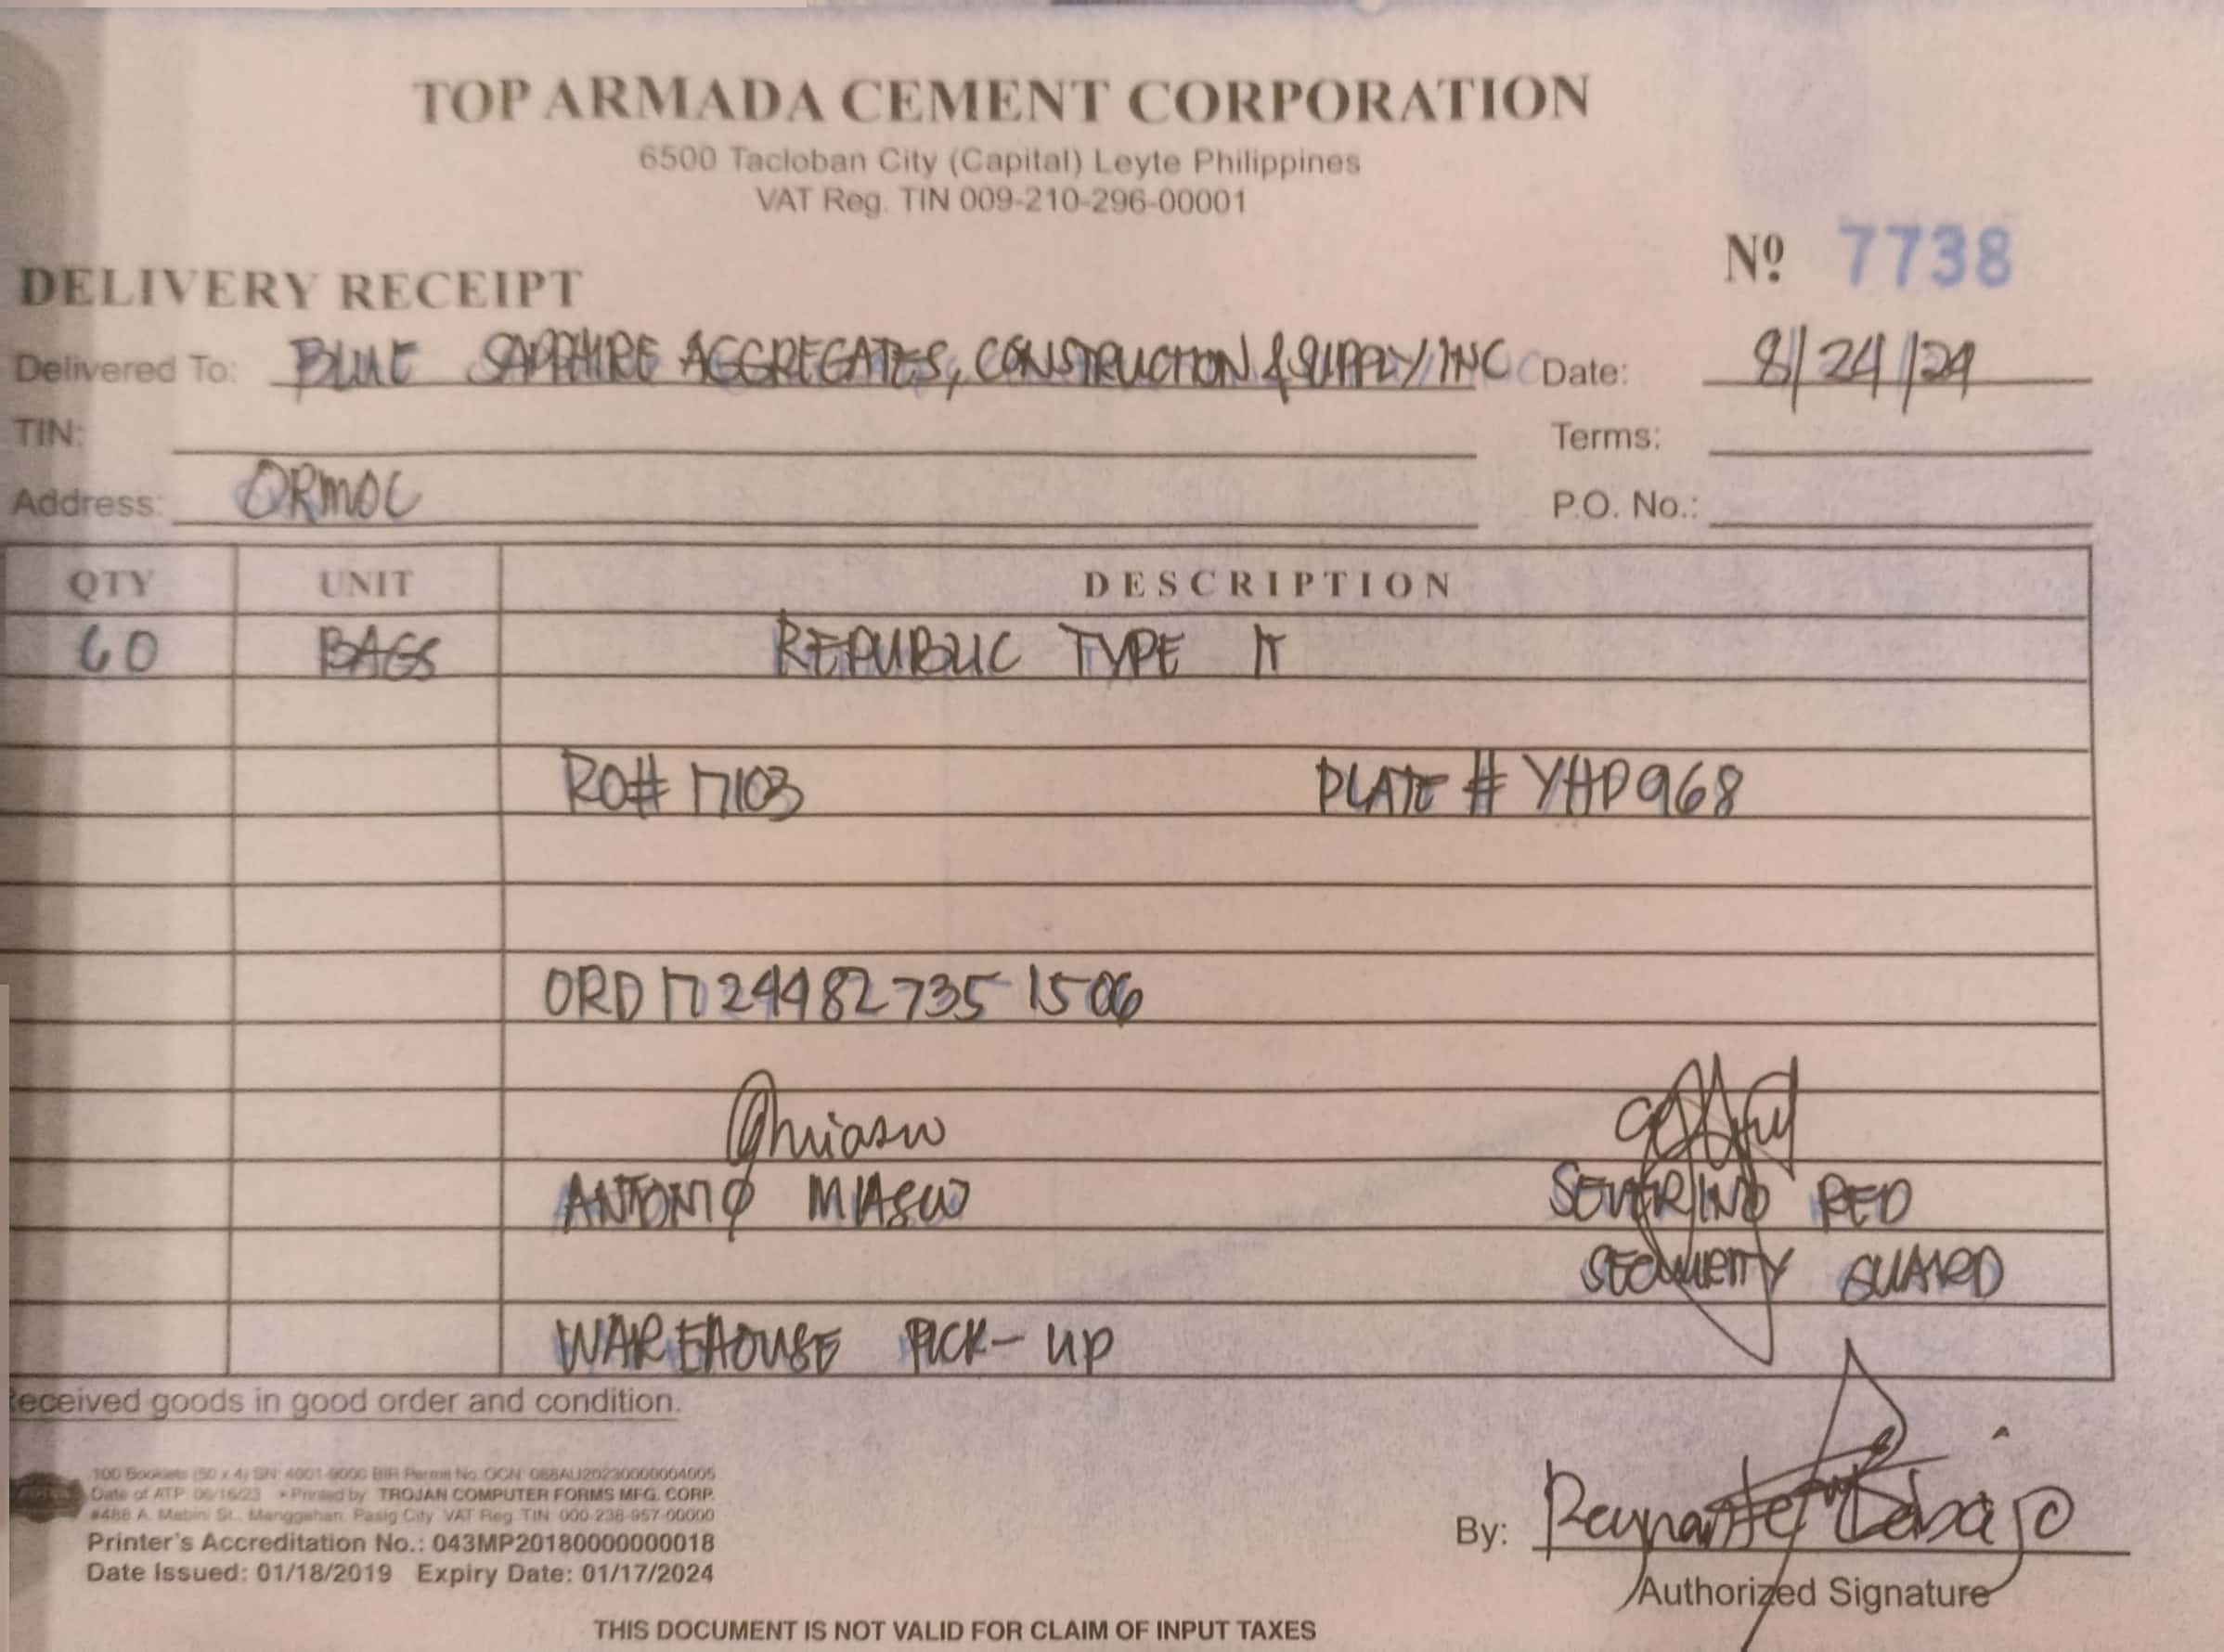 TOP ARMADA CEMENT CORPORATION
6500 Tacloban City (Capital) Leyte Philippines
VAT Reg. TIN 009-210-296-00001
Nº 7738
DELIVERY RECEIPT
Delivered To: BLUE SAPPHIRE AGGREGATES, CONSTRUCTION & SUPPLY INC Date: 8/24/24
TIN: Terms:
Address: ORMOC P.O. No.:
QTY UNIT DESCRIPTION
60 BAGS REPUBLIC TYPE IT
RO# 17103 PLATE # YHP968
ORD 17244827351506
ANTONIO MIASCO SEVERINO RED
SECURITY GUARD
WAREHOUSE PICK-UP
eceived goods in good order and condition.
100 Booklets (50 x 4) SN: 4001-9000 BIR Permit No. OCN: 088AU20230000004005
Date of ATP: 06/16/23 • Printed by TROJAN COMPUTER FORMS MFG. CORP.
#486 A. Mabini St., Manggahan, Pasig City VAT Reg. TIN 000-238-957-00000
Printer's Accreditation No.: 043MP20180000000018
Date Issued: 01/18/2019 Expiry Date: 01/17/2024
By: Reynante Debajo
Authorized Signature
THIS DOCUMENT IS NOT VALID FOR CLAIM OF INPUT TAXES